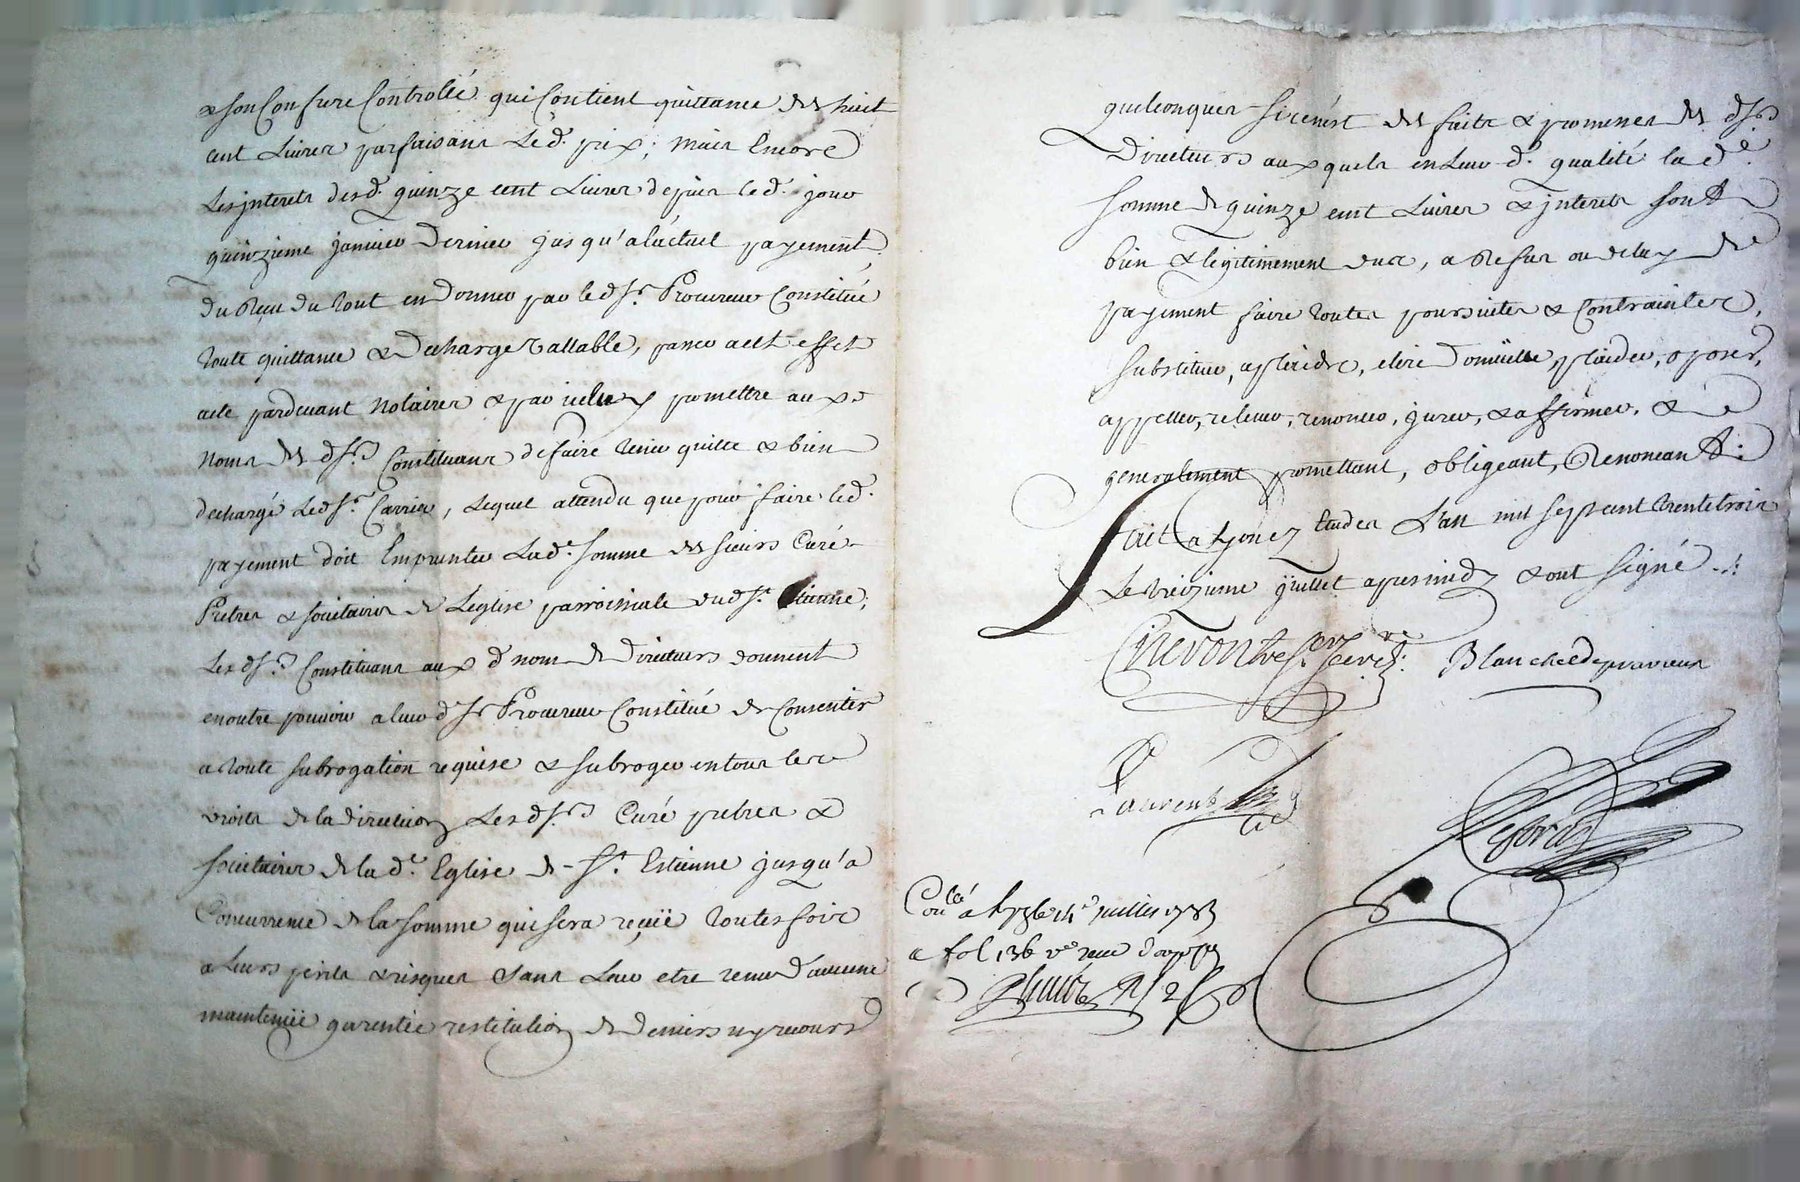 & son Confrere Controllé qui Contient quittance des huit
cent Livres parfaisans Le d. prix; mais Encore
Les jnterets desd. quinze cent Livres depuis led. jour
quinzieme janvier dernier jusqu'a l'actuel payement
du Reçu du tout en donner par led. Sr. Procureur Constitué
toute quittance & decharge vallable, passer a cet effet
acte pardevant Notaires & par icelluy promettre aux
noms des d. Srs Constituans de faire tenir quitte & bien
dechargé Led. Sr. Carrier, Lequel attendu que pour faire led.
payement doit Emprunter Lad. somme des sieurs Curé
Pretres & societaires de L'eglise parroissiale dud. St. Etienne;
Les d. Srs Constituans aux d. noms de Directeurs donnent
en outre pouvoir a leur d. Sr Procureur Constitué de Consentir
a toute subrogation requise & subroger en tous les
droits de la direction Les d. Srs Curé pretres &
societaires de la d. Eglise de St. Estienne jusqu'a
Concurrence de la somme qui sera reçüe toutes fois
a Leurs perils & risques sans Leur etre tenu d'aucune
maintenüe garentie restitution de deniers ny recours
quelconques si ce n'est des faits & promesses des d. Srs
Directeurs auxquels en Leur d. qualité la de.
somme de quinze cent Livres & jnterets sont
bien & legitimement dus, a Refus ou delay de
payement faire toutes poursuites & Contraintes,
substituer, aplaidre, elire domicille, plaider, oposer,
appeller, relever, renoncer, jurer, & affirmer, &
generalement promettant, obligeant, Renonçant &:
fait a Lyon ez Etudes L'an mil sept cent trente trois
Le treizieme juillet apres midy & ont signé
Blanchet de pravieux
Laurent
Collé a Lyon le 14e juillet 1733
fol 136 vo receu